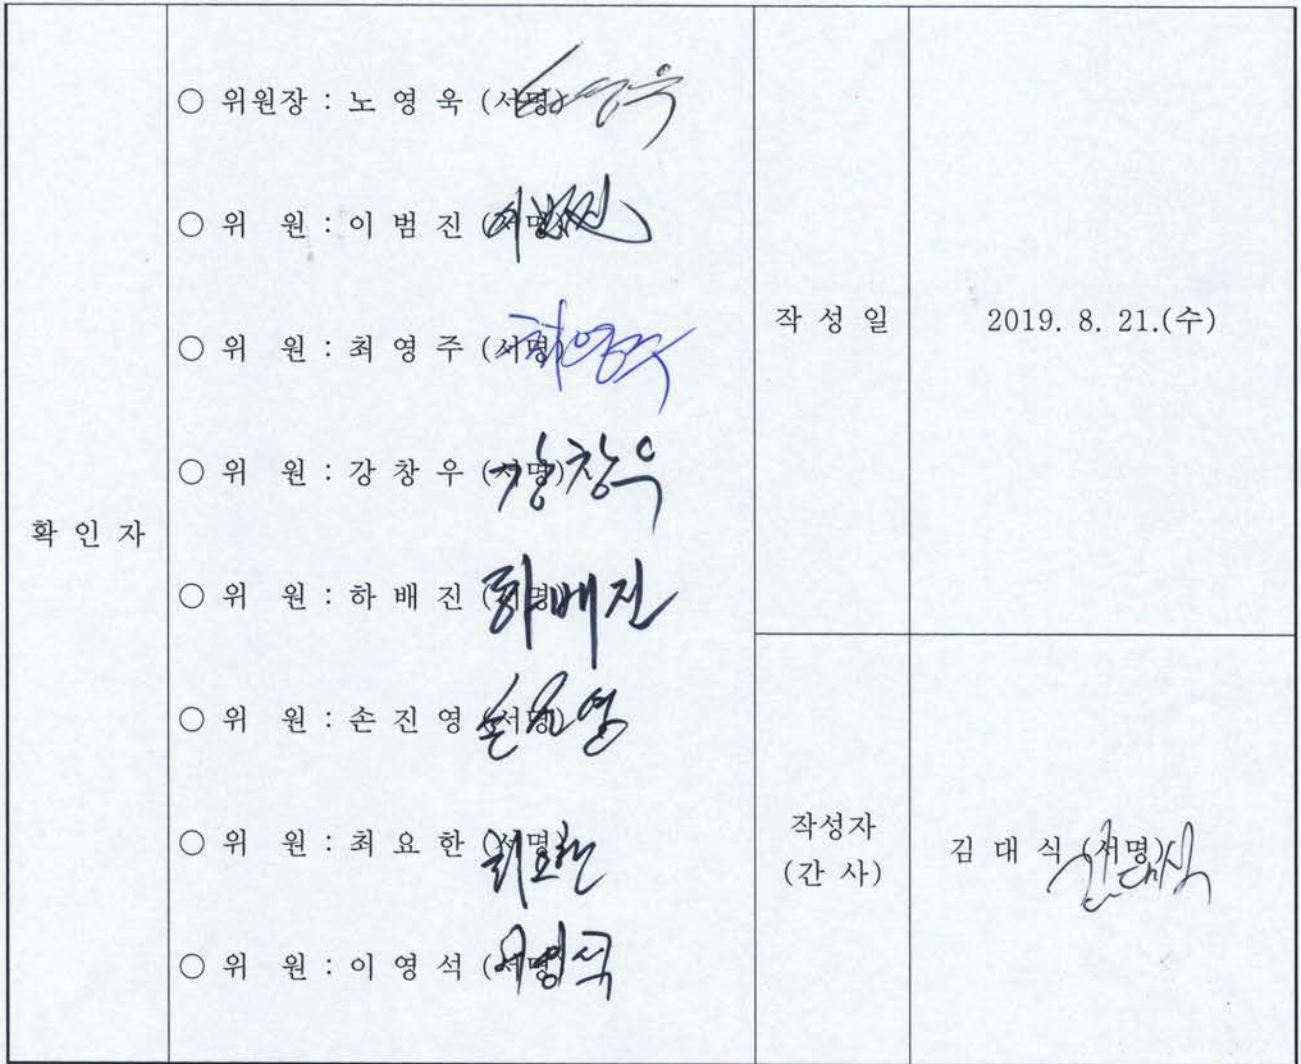 확 인 자
○ 위원장 : 노 영 욱 (서명)
○ 위 원 : 이 범 진 (서명)
○ 위 원 : 최 영 주 (서명)
○ 위 원 : 강 창 우 (서명)
○ 위 원 : 하 배 진 (서명)
○ 위 원 : 손 진 영 (서명)
○ 위 원 : 최 요 한 (서명)
○ 위 원 : 이 영 석 (서명)
작 성 일
2019. 8. 21.(수)
작성자
(간 사)
김 대 식 (서명)